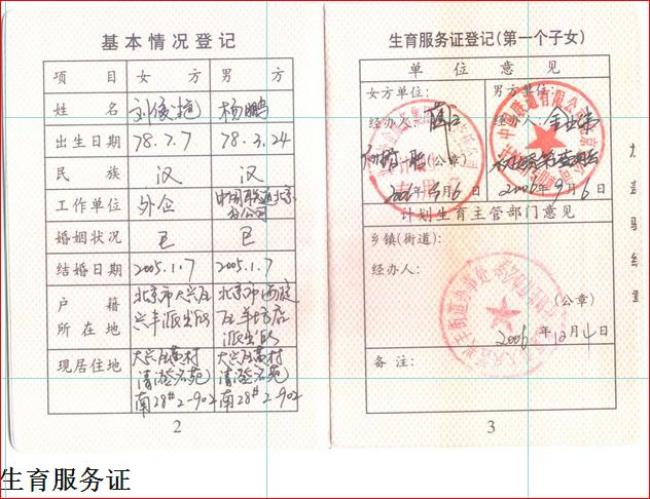 基本情况登记
项 目 女 方 男 方
姓 名 杨鹏
出生日期 78.7.7 78.3.24
民 族 汉 汉
工作单位 外企 中国联通北京分公司
婚姻状况 已 已
结婚日期 2005.1.7 2005.1.7
户 籍 所 在 地 北京市大兴区 北京市海淀
兴丰派出所 区羊坊店
派出所
现居住地 大兴区黄村 大兴区黄村
清澄名苑 清澄名苑
南28#2-902 南28#2-902
2
生育服务证登记(第一个子女)
单 位 意 见
女方单位: 男方单位:
经办人: 经办人:
(公章)
2006年9月6日 2006年9月6日
计划生育主管部门意见
乡镇(街道):
经办人:
(公章)
2006年12月4日
备 注:
3
生育服务证